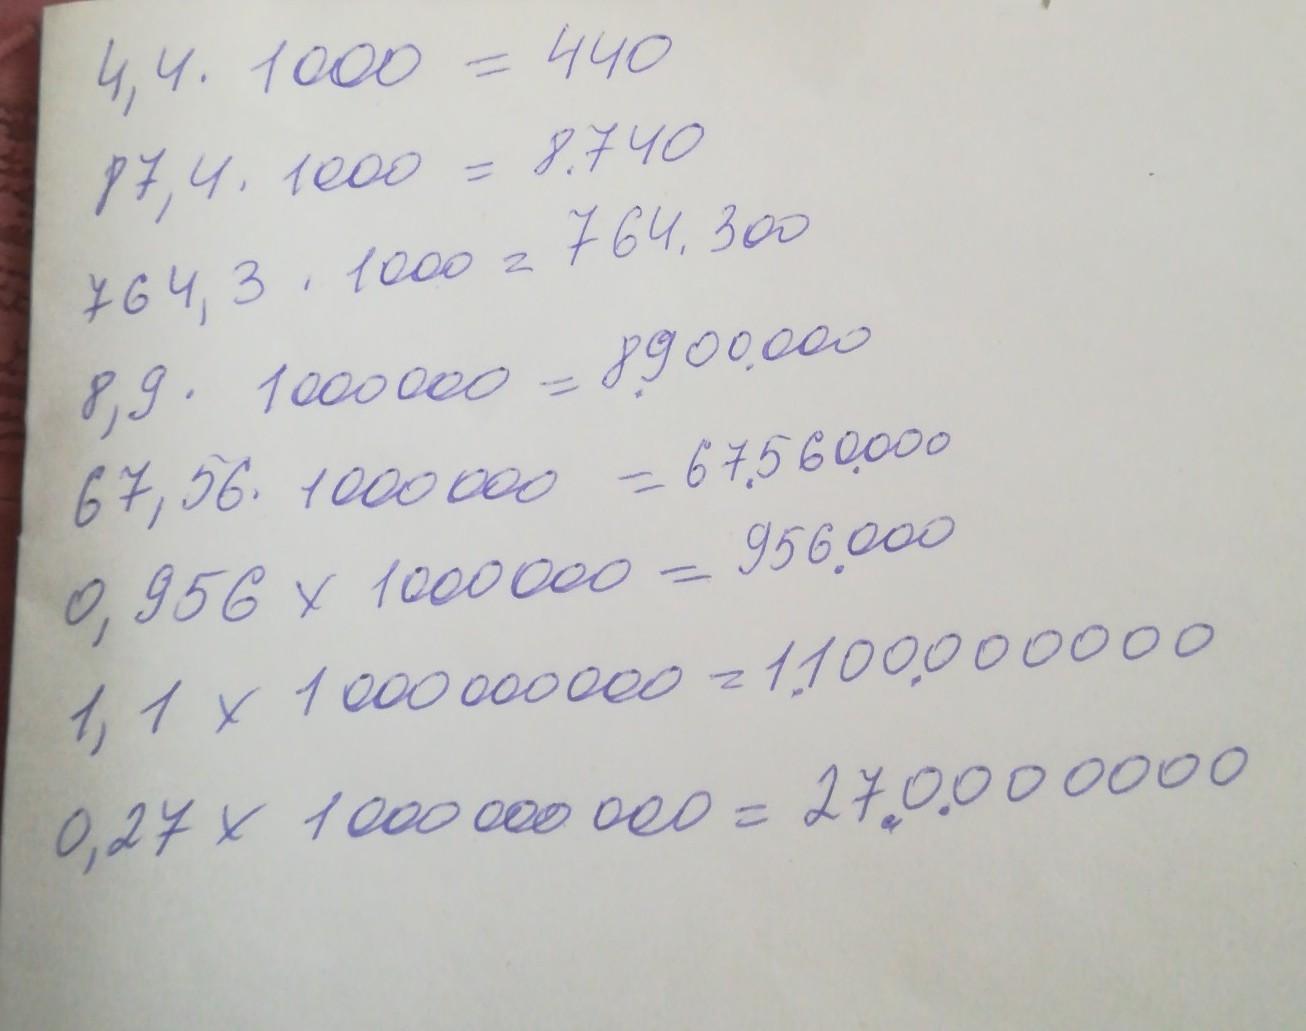 4,4. 1000 = 440
87,4. 1000 = 8.740
764,3 . 1000 = 764.300
8,9. 1000000 = 8.900.000
67,56. 1000000 = 67.560.000
0,956 x 1000000 = 956.000
1,1 x 1000000000 = 1.100.000000
0,27 x 1000000000 = 27.0.000000